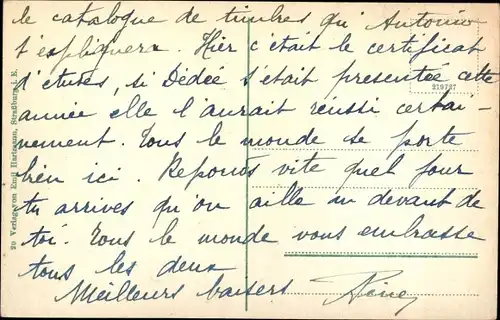 le catalogue de timbres qu'Antonio
t'expliquera. Hier c'était le certificat
d'études, si Dédée s'était presentée cette
année elle l'aurait reussi certai-
nement. Tous le monde se porte
bien ici. Reponds vite quel jour
tu arrives qu'on aille au devant de
toi. Tous le monde vous embrasse
tous les deux
Meilleurs baisers
219727
20 Verlag von Emil Hartmann, Straßburg i. E.